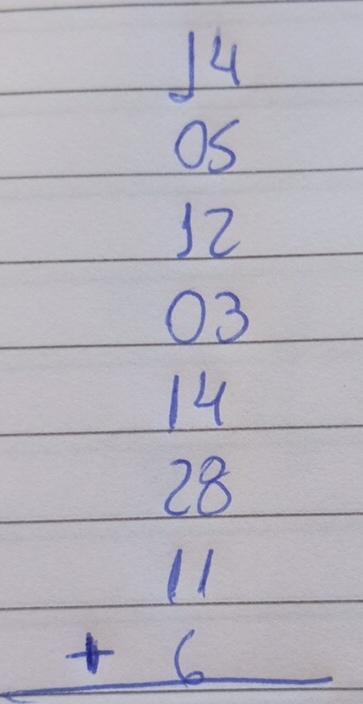 14
05
12
03
14
28
11
+ 6